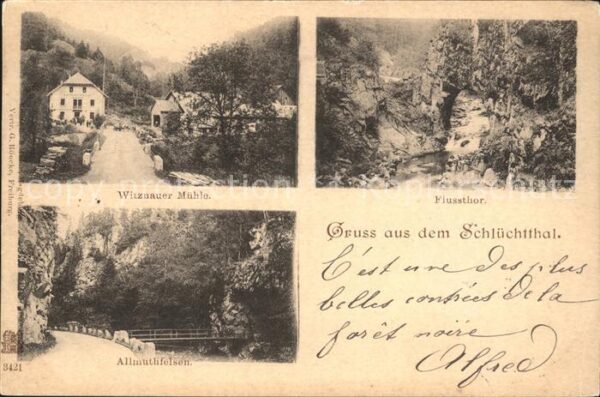 Witznauer Mühle.
Flussthor.
Gruss aus dem Schlüchtthal.
C'est une des plus
belles contrées de la
forêt noire
Alfred
Allmuthfelsen.
3421
Freiburg.